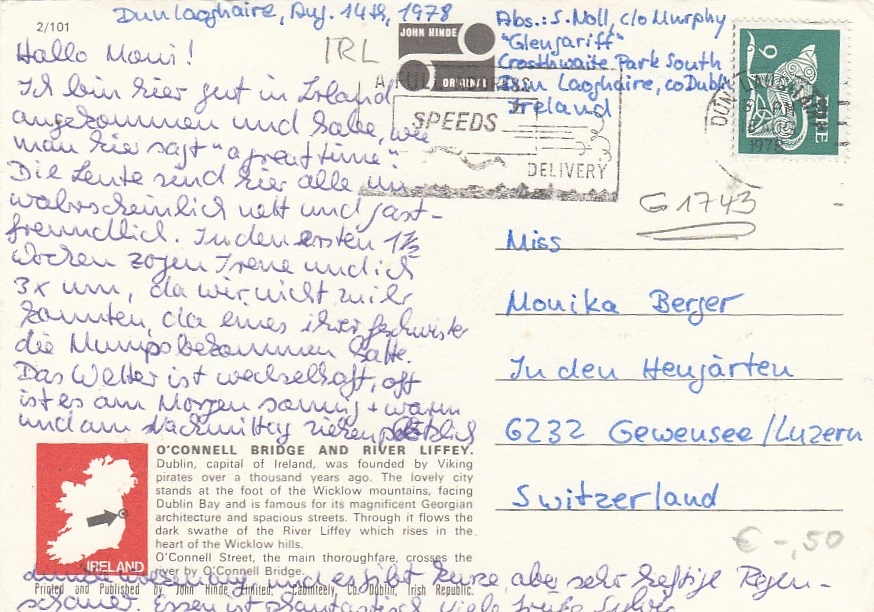 2/101
Dun Laoghaire, Aug. 14th, 1978
Hallo Moni!
Ich bin hier gut in Irland
angekommen und habe, wie
man hier sagt "a great time"
Die Leute sind hier alle
wahrscheinlich nett und gast-
freundlich. In den ersten 1½
Wochen zogen Irene und ich
3x um, da wir nicht zu ihr
konnten, da eines ihrer Geschwister
die Mumps bekommen hatte.
Das Wetter ist wechselhaft, oft
ist es am Morgen sonnig + warm
und am Nachmittag ziehen plötzlich
und es gibt kurze, aber sehr heftige Regen-
schauer. Essen ist phantastisch. Viele
IRL
JOHN HINDE
ORIGINAL
SPEEDS
DELIVERY
Abs.: S. Moll, c/o Murphy
"Glengariff"
Crosthwaite Park South
Dun Laoghaire, co Dublin
Ireland
9
EIRE
DUN LAOGHAIRE
1978
G 1743
Miss
Monika Berger
In den Heugärten
6232 Geuensee/Luzern
Switzerland
€ -,50
O'CONNELL BRIDGE AND RIVER LIFFEY.
Dublin, capital of Ireland, was founded by Viking
pirates over a thousand years ago. The lovely city
stands at the foot of the Wicklow mountains, facing
Dublin Bay and is famous for its magnificent Georgian
architecture and spacious streets. Through it flows the
dark swathe of the River Liffey which rises in the
heart of the Wicklow hills.
O'Connell Street, the main thoroughfare, crosses the
river by O'Connell Bridge.
IRELAND
Printed and Published by John Hinde Limited, Cabinteely, Co. Dublin, Irish Republic.